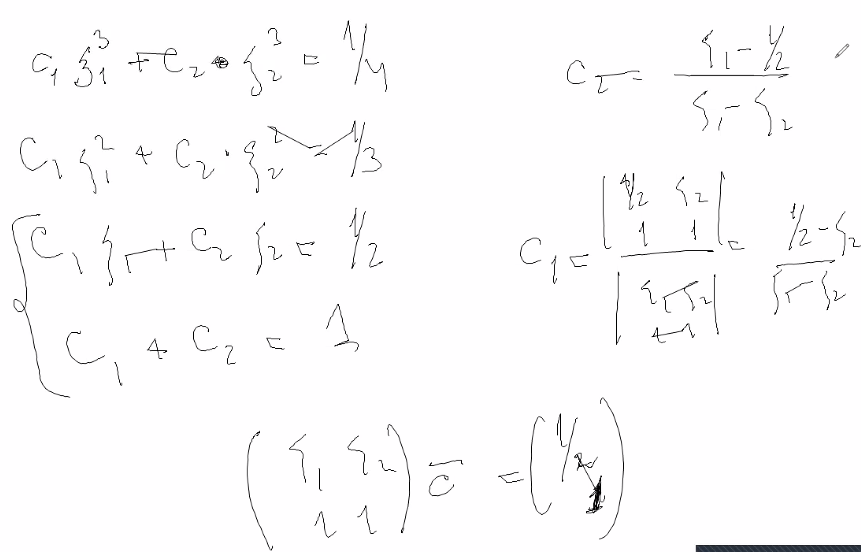 C₁ ξ₁³ + C₂ · ξ₂³ = 1/4
C₁ ξ₁² + C₂ · ξ₂² = 1/3
C₁ ξ₁ + C₂ ξ₂ = 1/2
C₁ + C₂ = 1
C₂ = (ξ₁ - 1/2) / (ξ₁ - ξ₂)
C₁ = | 1/2 ξ₂ ; 1 1 | / | ξ₁ ξ₂ ; 1 1 | = (1/2 - ξ₂) / (ξ₁ - ξ₂)
( ξ₁ ξ₂ ; 1 1 ) c̄ = ( 1/2 ; 1 )